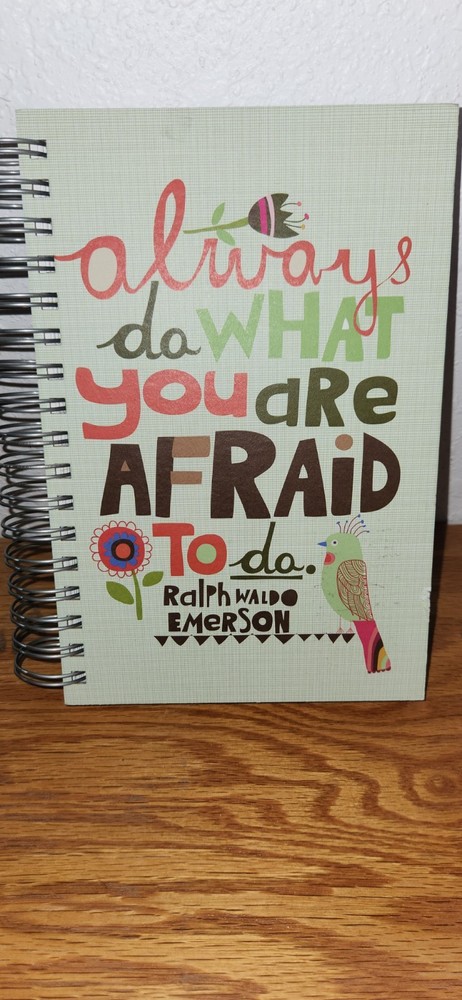 always
do WHAT
you aRe
AFRAiD
To do.
Ralph WALDO
EMeRSON